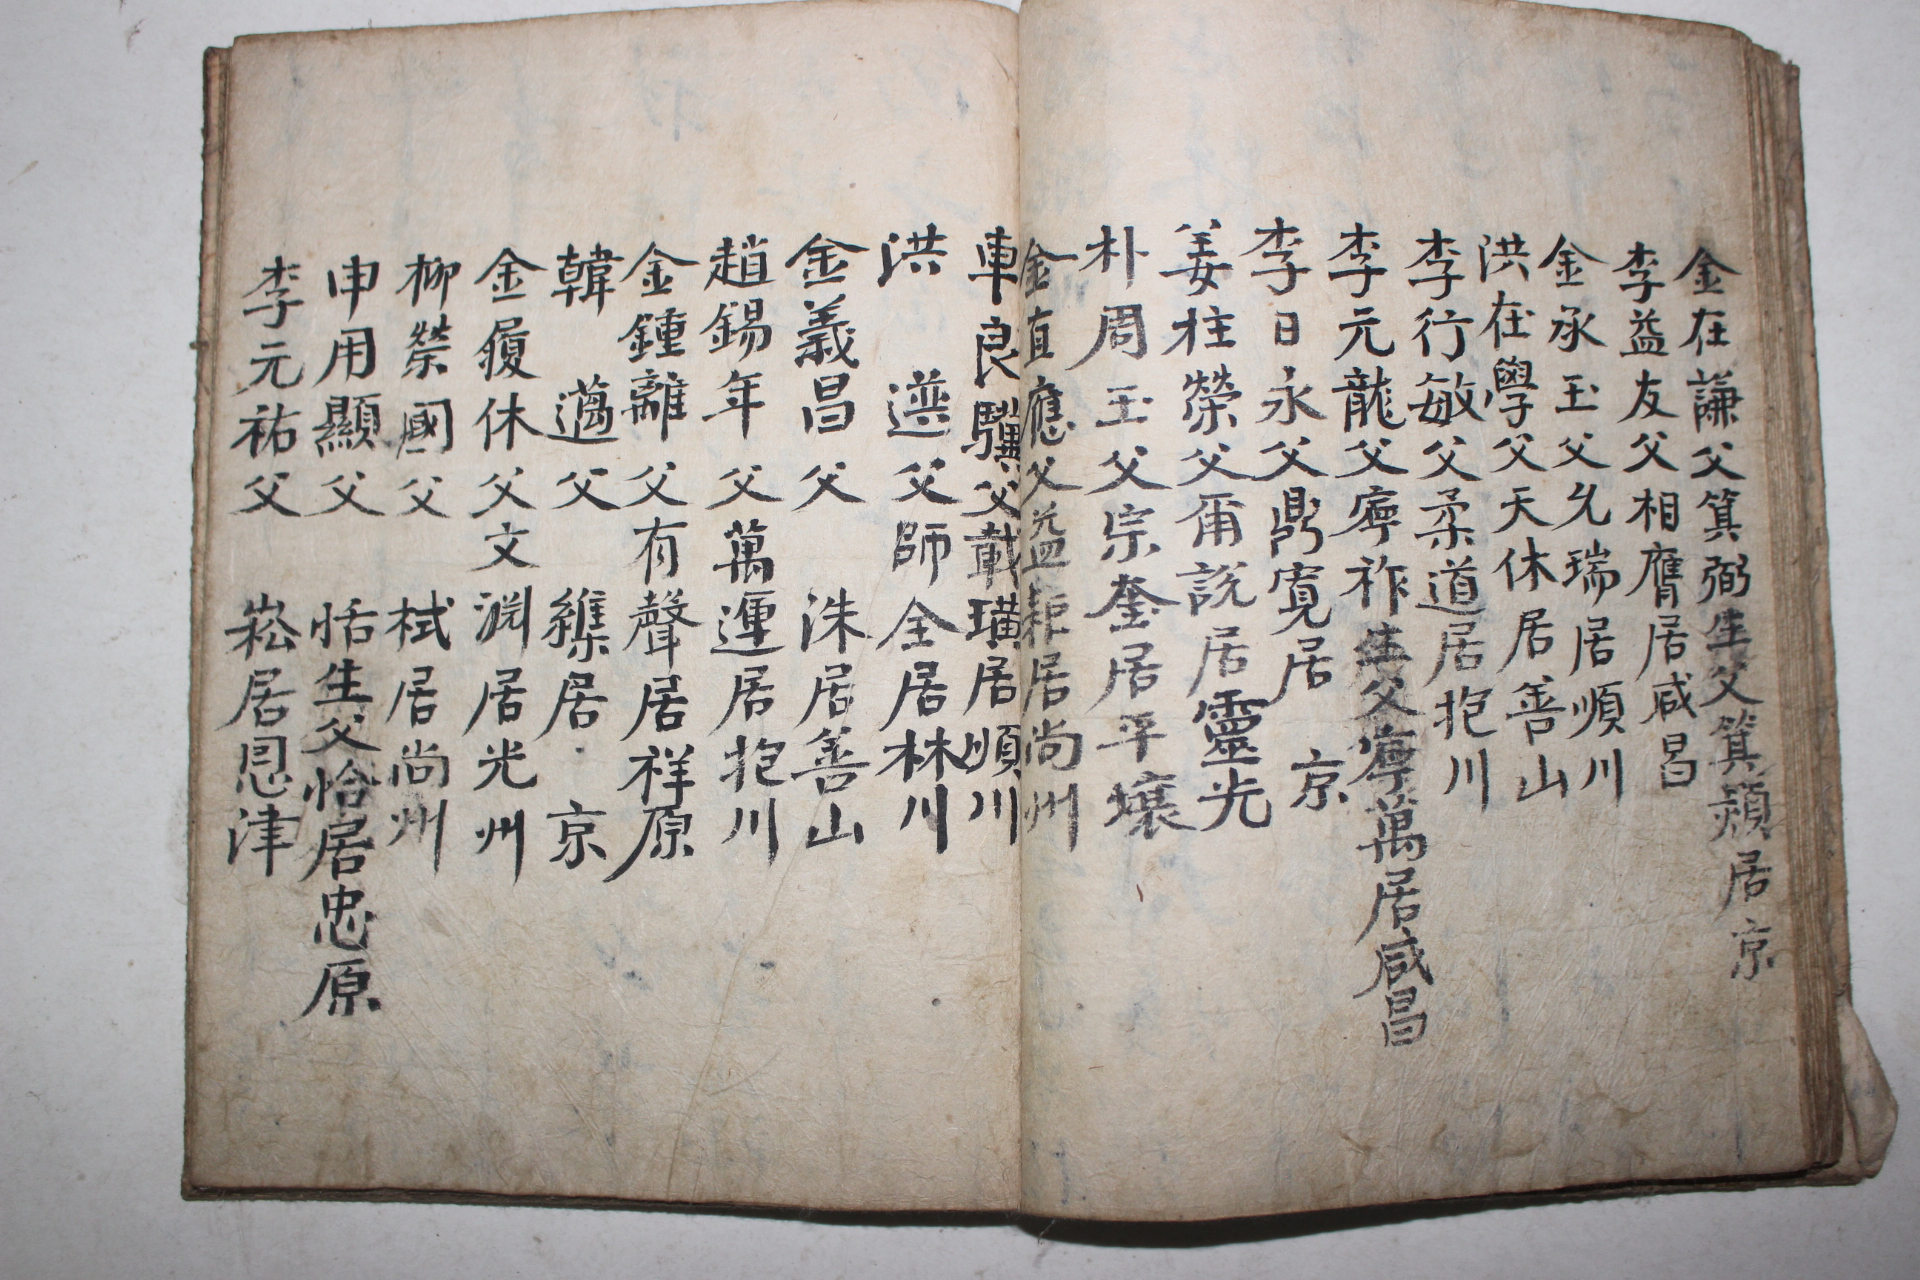 金在謙父箕弼生父箕潁居京
李益友父相膺居咸昌
金承玉父允瑞居順川
洪在學父天休居善山
李行敏父柔道居抱川
李元龍父寧祚生父寧萬居咸昌
李日永父鼎寬居京
姜柱榮父爾說居靈光
朴周玉父宗奎居平壤
金直應父益 居尚州
車良驥父載璜居順川
洪 父師全居林川
金義昌父洙居善山
趙錫年父萬運居抱川
金鍾離父有聲居祥原
韓邁父緝居京
金履休父文淵居光州
柳榮國父栻居尚州
申用顯父恬生父恰居忠原
李元祐父崧居恩津